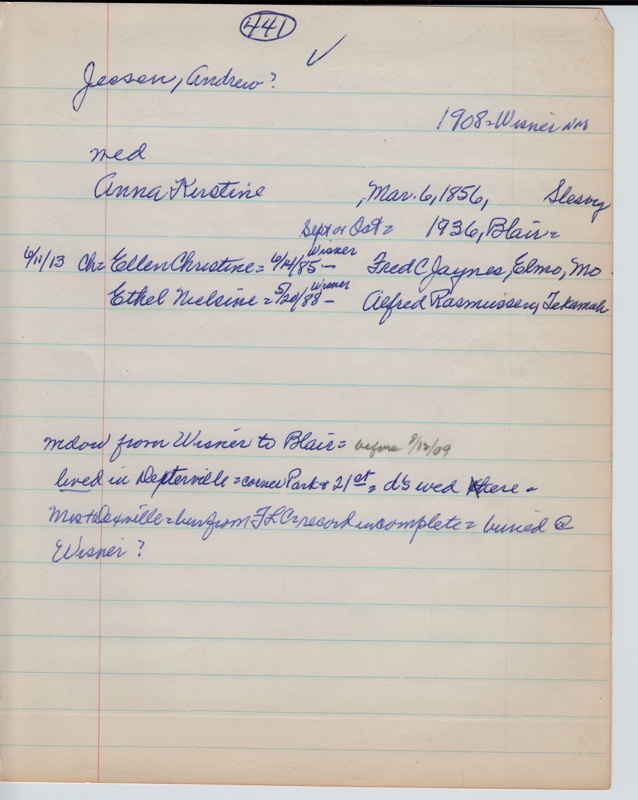 441
Jessen, Andrew?
1908 = Wisner
med
Anna Kerstine , Mar. 6, 1856, Slesvig
Sept or Oct = 1936, Blair =
6/11/13 Ch = Ellen Christine = 6/14/85 – Wisner Fred C Jaynes, Elmo, Mo.
Ethel Nielsine = 5/20/88 – Wisner Alfred Rasmussen, Tekamah
from Wisner to Blair = before 9/12/09
lived in Dexterville = corner Park & 21st = d's wed there =
= bur from FLC = record incomplete = buried @
Wisner?